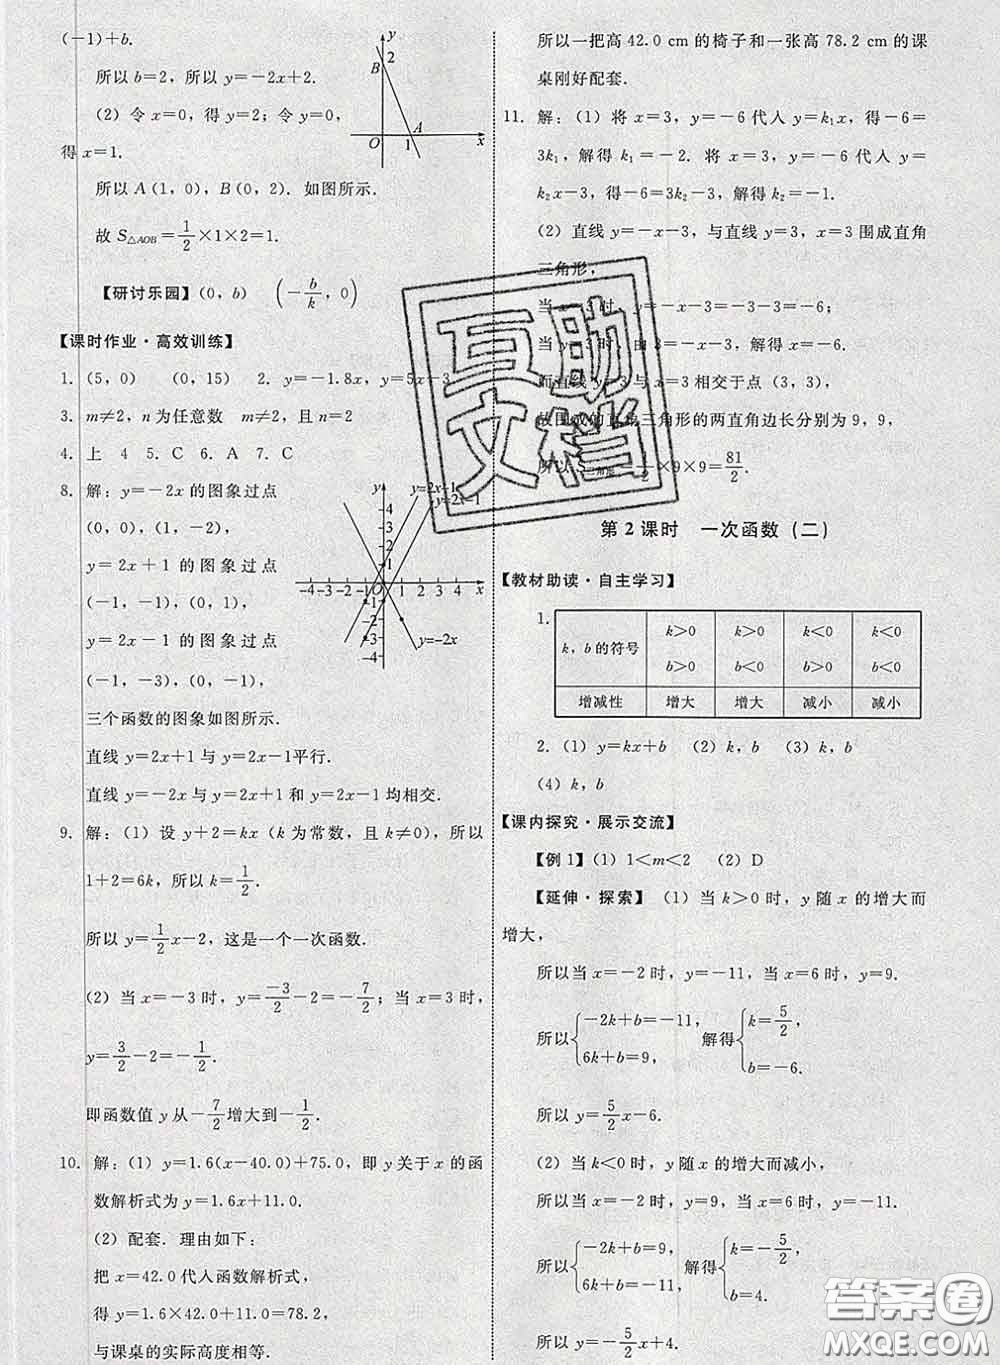 (-1)+b.
所以 b=2，所以 y=-2x+2.
(2) 令 x=0，得 y=2；令 y=0，
得 x=1.
所以 A(1，0)，B(0，2). 如图所示.
故 S△AOB=1/2×1×2=1.
y
2
B
O
1
A
x
【研讨乐园】(0，b) (-b/k，0)
【课时作业·高效训练】
1. (5，0) (0，15) 2. y=-1.8x，y=5x-3
3. m≠2，n为任意数 m≠2，且 n=2
4. 上 4 5. C 6. A 7. C
8. 解：y=-2x 的图象过点
(0，0)，(1，-2)，
y=2x+1 的图象过点
(-1，-1)，(0，1)，
y=2x-1 的图象过点
(-1，-3)，(0，-1)，
三个函数的图象如图所示.
y
4
3
2
1
-4-3-2-1 O 1 2 3 4 x
-1
-2
-3
-4
y=2x-1
y=-2x
直线 y=2x+1 与 y=2x-1平行.
直线 y=-2x 与 y=2x+1 和 y=2x-1 均相交.
9. 解：(1) 设 y+2=kx (k 为常数，且 k≠0)，所以
1+2=6k，所以 k=1/2.
所以 y=1/2x-2，这是一个一次函数.
(2) 当 x=-3 时，y=-3/2-2=-7/2；当 x=3 时，
y=3/2-2=-1/2.
即函数值 y 从-7/2增大到-1/2.
10. 解：(1) y=1.6(x-40.0)+75.0，即 y 关于 x 的函
数解析式为 y=1.6x+11.0.
(2) 配套. 理由如下：
把 x=42.0 代入函数解析式，
得 y=1.6×42.0+11.0=78.2，
与课桌的实际高度相等.
所以一把高 42.0 cm 的椅子和一张高 78.2 cm 的课
桌刚好配套.
11. 解：(1) 将 x=3，y=-6 代入 y=k₁x，得-6=
3k₁，解得 k₁=-2. 将 x=3，y=-6 代入 y=
k₂x-3，得-6=3k₂-3，解得 k₂=-1.
(2) 直线 y=-x-3，与直线 y=3，x=3 围成直角
三角形，
当 x=3 时，y=-x-3=-3-3=-6；
当 y=3 时，由 3=-x-3，解得 x=-6.
而直线 y=3 与 x=3 相交于点 (3，3)，
故围成的直角三角形的两直角边长分别为 9，9，
所以 S三角形=1/2×9×9=81/2.
互助
文档
第 2 课时 一次函数 (二)
【教材助读·自主学习】
1.
k，b 的符号 k>0 b>0 k>0 b<0 k<0 b>0 k<0 b<0
增减性 增大 增大 减小 减小
2. (1) y=kx+b (2) k，b (3) k，b
(4) k，b
【课内探究·展示交流】
【例 1】(1) 1<m<2 (2) D
【延伸·探索】(1) 当 k>0 时，y 随 x 的增大而
增大，
所以当 x=-2 时，y=-11，当 x=6 时，y=9.
所以{-2k+b=-11，6k+b=9， 解得{k=5/2，b=-6.
所以 y=5/2x-6.
(2) 当 k<0 时，y随 x 的增大而减小，
所以当 x=-2 时，y=9，当 x=6 时，y=-11.
所以{-2k+b=9，6k+b=-11， 解得{k=-5/2，b=4.
所以 y=-5/2x+4.
答案圈
MXQE.COM